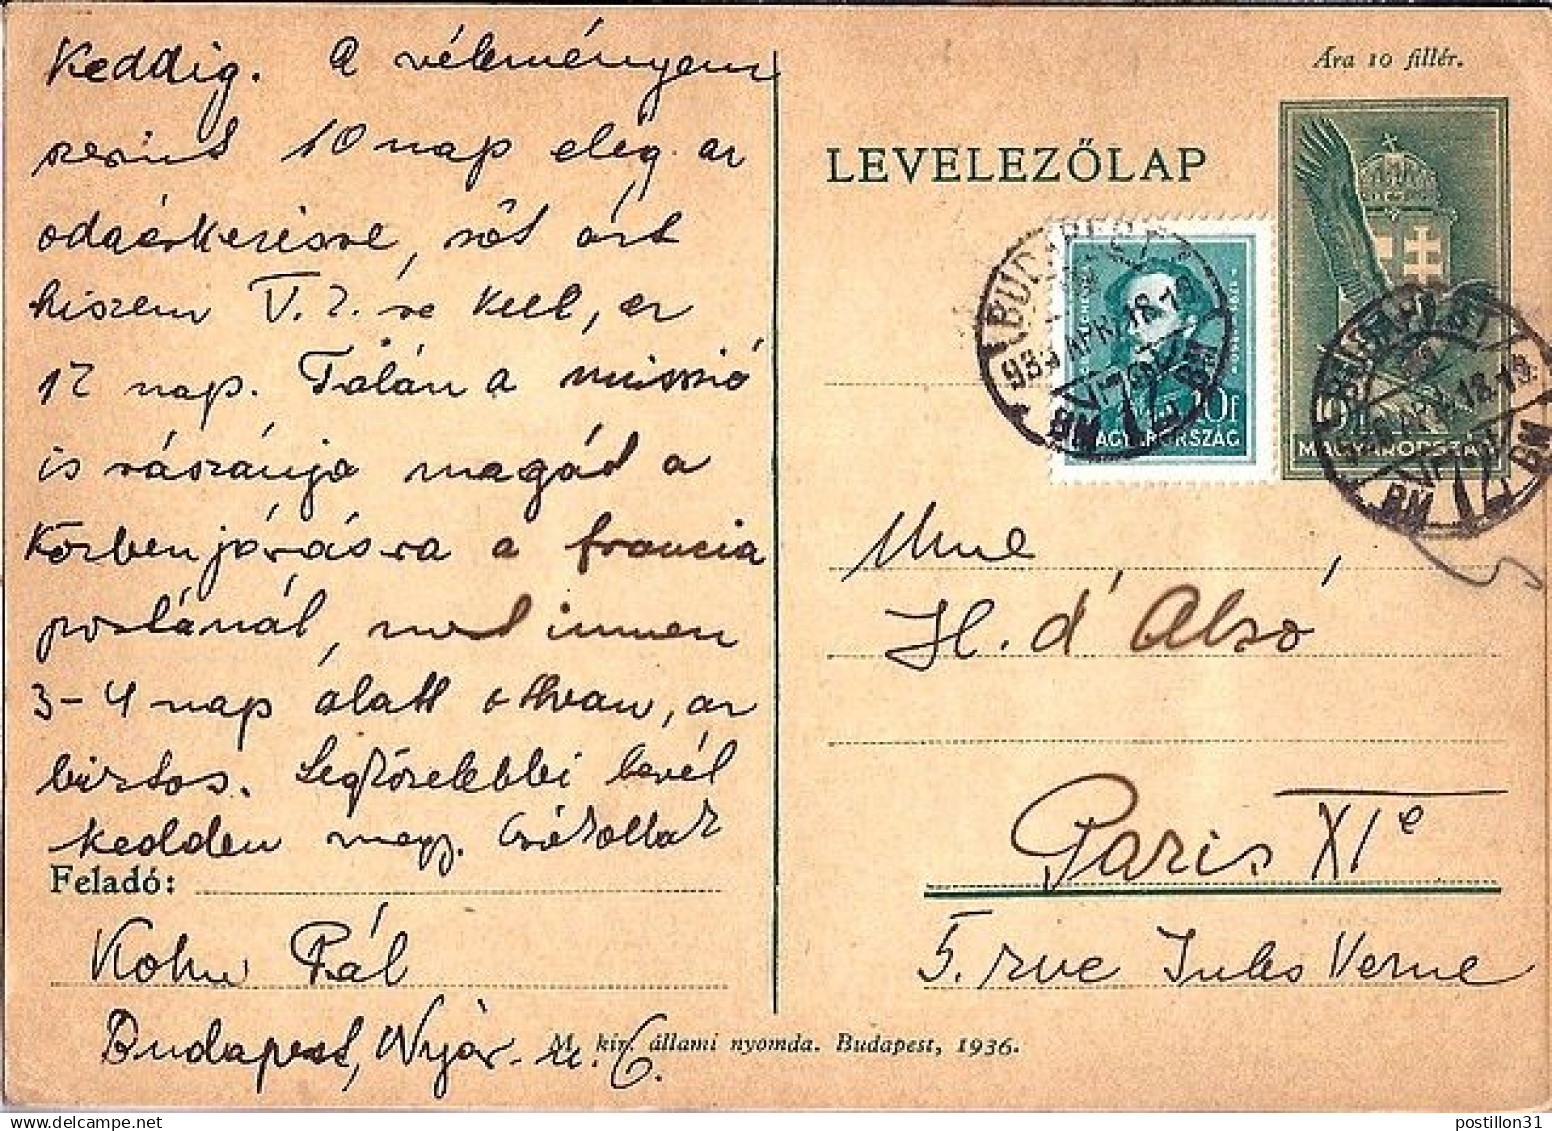 Keddig. A véleményem
szerint 10 nap elég az
odaérkezésre, sőt azt
hiszem V. 2.-re kell, ez
12 nap. Talán a misszió
is rászánja magát a
közbenjárásra a francia
postánál, mert innen
3-4 nap alatt ottvan, az
biztos. Legközelebbi levél
kedden megy. Csókollak
Feladó:
Kohn Pál
Budapest, Nyár-u. 6.
M. kir. állami nyomda. Budapest, 1936.
Ára 10 fillér.
LEVELEZŐLAP
BUDAPEST
APR. 18. 19
MAGYARORSZÁG
MAGYARORSZÁG
Mme
H. d'Alsó
Paris XIe
5. rue Jules Verne
postillon31